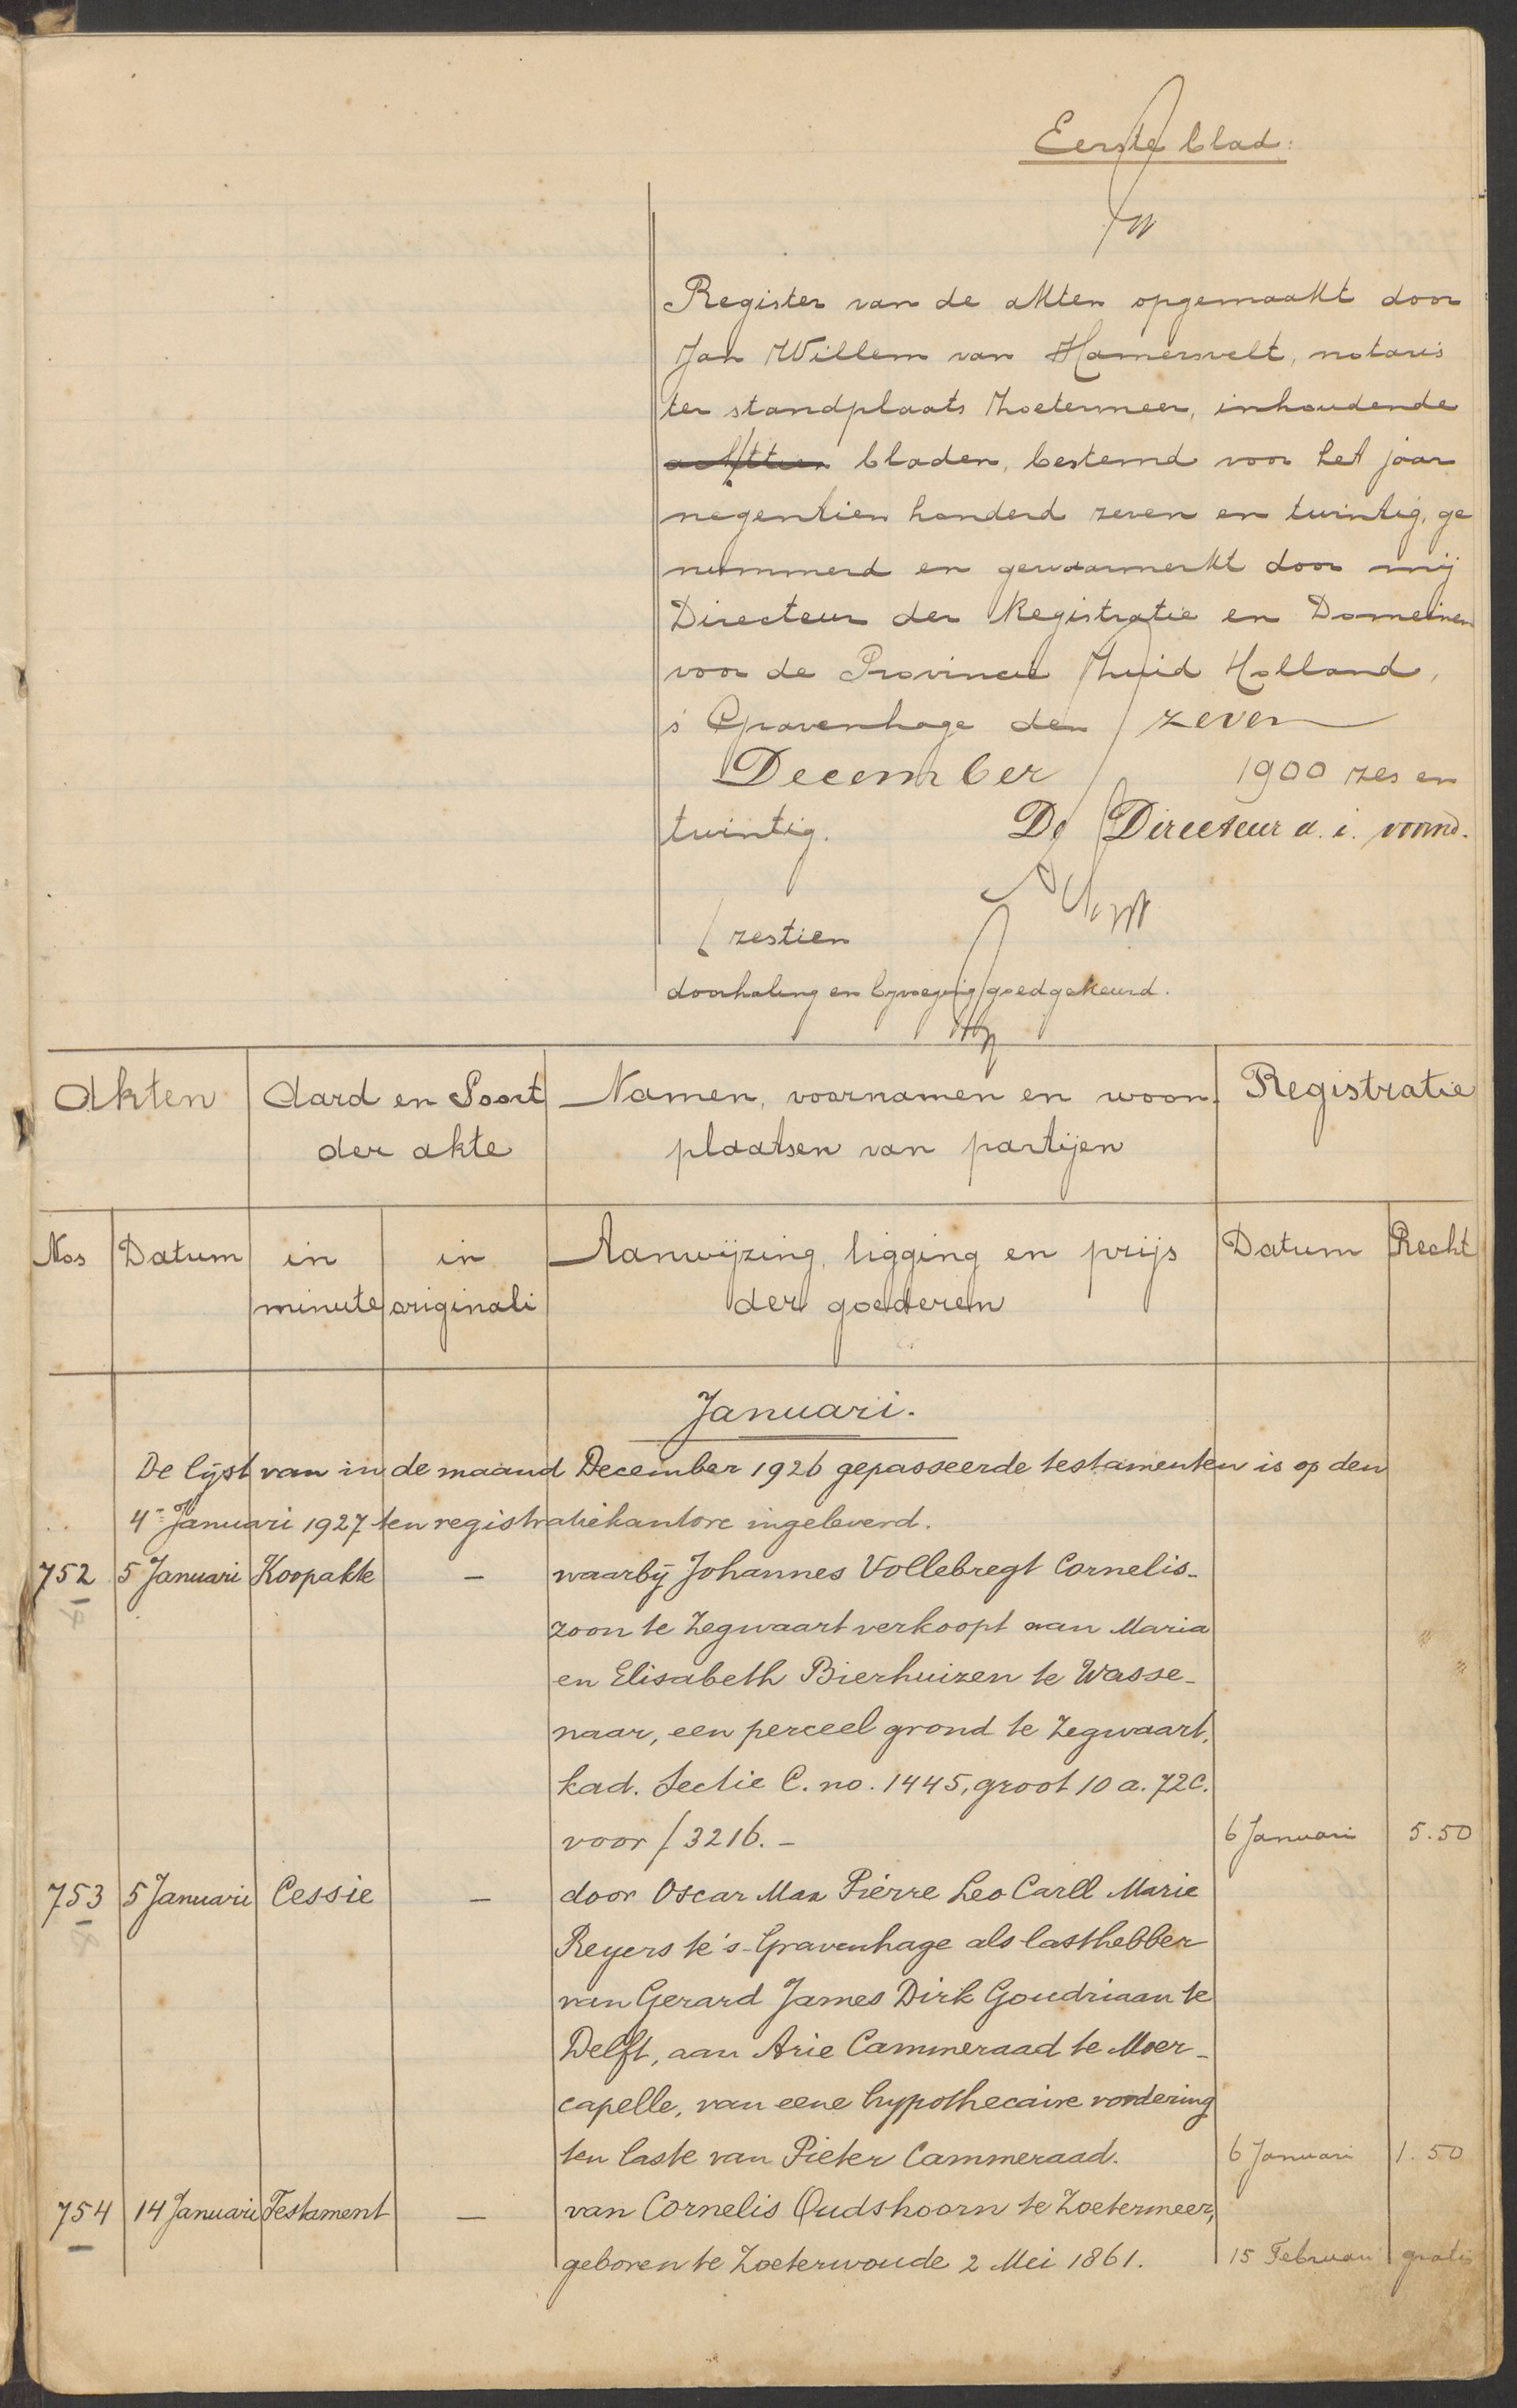 Eerste blad:
Register van de akten opgemaakt door
Jan Willem van Hamersvelt, notaris
ter standplaats Zoetermeer, inhoudende
achttien bladen, bestemd voor het jaar
negentien honderd zeven en twintig, ge
nummerd en gewaarmerkt door mij
Directeur der Registratie en Domeinen
voor de Provincie Zuid Holland,
's Gravenhage den zeven
December 1900 zes en
twintig. De Directeur a. i. voornd.
zestien
doorhaling en bijvoeging goedgekeurd.
Akten Aard en Soort Namen, voornamen en woon- Registratie
der akte plaatsen van partijen
Nos Datum in in Aanwijzing, ligging en prijs Datum Recht
minute originali der goederen
Januari.
De lijst van in de maand December 1926 gepasseerde testamenten is op den
4n Januari 1927 ten registratiekantore ingeleverd.
752 5 Januari Koopakte — waarbij Johannes Vollebregt Cornelis-
zoon te Zegwaart verkoopt aan Maria
en Elisabeth Bierhuizen te Wasse-
naar, een perceel grond te Zegwaart,
kad. Sectie C. no. 1445, groot 10 a. 72 c.
voor f 3216.- 6 Januari 5.50
753 5 Januari Cessie — door Oscar Max Pierre Leo Carll Marie
Reyers te 's-Gravenhage als lasthebber
van Gerard James Dirk Goudriaan te
Delft, aan Arie Cammeraad te Moer-
capelle, van eene hypothecaire vordering
ten laste van Pieter Cammeraad. 6 Januari 1.50
754 14 Januari Testament — van Cornelis Oudshoorn te Zoetermeer,
geboren te Zoeterwoude 2 Mei 1861. 15 Februari gratis